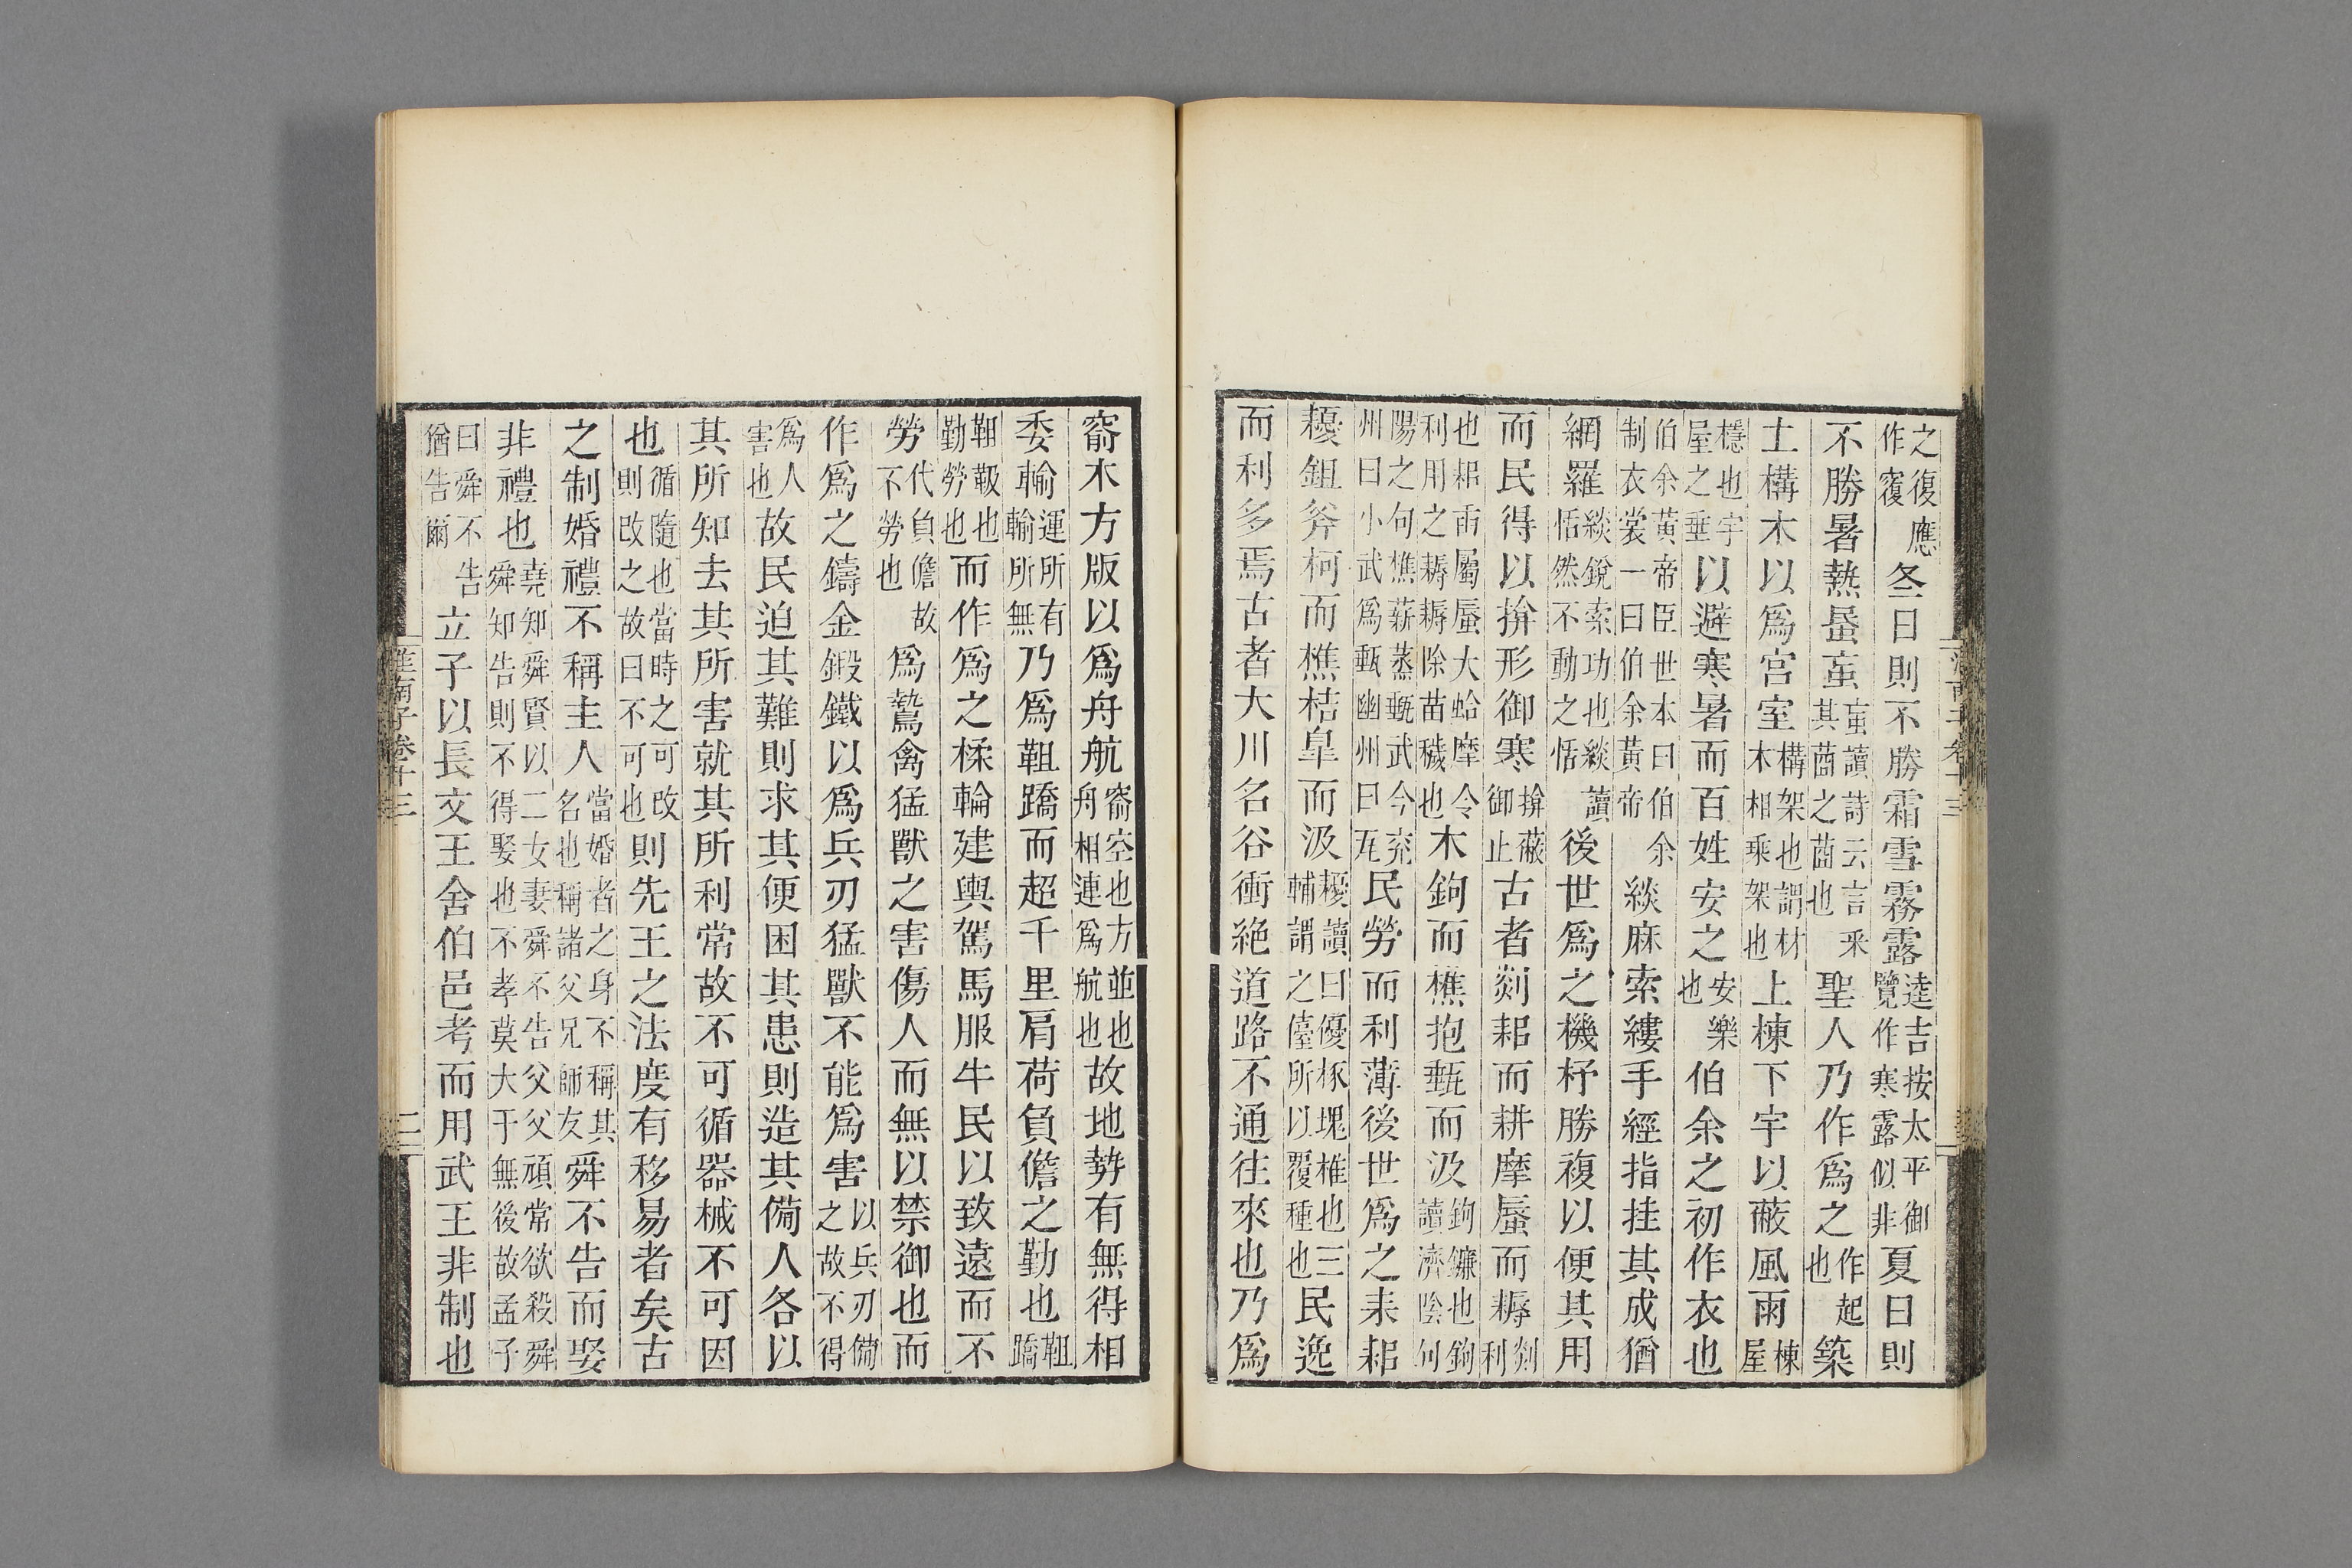 之復應作䆠冬日則不勝霜雪霧露逵吉按太平御覽作寒露似非夏日則
不勝暑熱蟁䖟䖟讀詩云言采其莔之莔也聖人乃作爲之作起也築
土構木以爲宮室構架也謂材木相乘架也上棟下宇以蔽風雨棟屋
檼也宇屋之垂以避寒暑而百姓安之安樂也伯余之初作衣也
伯余黃帝臣世本曰伯余制衣裳一曰伯余黃帝緂麻索縷手經指挂其成猶
網羅緂銳索功也緂讀恬然不動之恬後世爲之機杼勝複以便其用
而民得以揜形御寒揜蔽御止古者剡耜而耕摩蜃而耨剡利
也耜臿屬蜃大蛤摩令利用之耨耨除苗穢也木鉤而樵抱甀而汲鉤鐮也鉤讀濟陰何
陽之句樵薪蒸甀武今兗州曰小武爲甀幽州曰瓦民勞而利薄後世爲之耒耜
耰鉏斧柯而樵桔臯而汲耰讀曰優椓塊椎也三輔謂之儓所以覆種也民逸
而利多焉古者大川名谷衝絕道路不通往來也乃爲
窬木方版以爲舟航窬空也方並也舟相連爲航也故地勢有無得相
委輸運所有輸所無乃爲靻蹻而超千里肩荷負儋之勤也靻蹻
靻靸也勤勞也而作爲之楺輪建輿駕馬服牛民以致遠而不
勞代負儋故不勞也爲鷙禽猛獸之害傷人而無以禁御也而
作爲之鑄金鍛鐵以爲兵刃猛獸不能爲害以兵刃備之故不得
爲人害也故民迫其難則求其便困其患則造其備人各以
其所知去其所害就其所利常故不可循器械不可因
也循隨也當時之可改則改之故曰不可也則先王之法度有移易者矣古
之制婚禮不稱主人當婚者之身不稱其名也稱諸父兄師友舜不告而娶
非禮也堯知舜賢以二女妻舜不告父父頑常欲殺舜舜知告則不得娶也不孝莫大于無後故孟子
曰舜不告猶告爾立子以長文王舍伯邑考而用武王非制也
淮南子卷十三
二